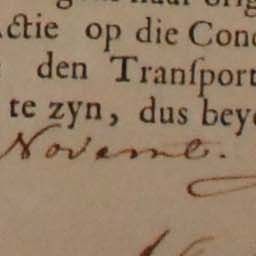 Actie op die Cond
den Tranſport
te zyn, dus beyd
Novemb.